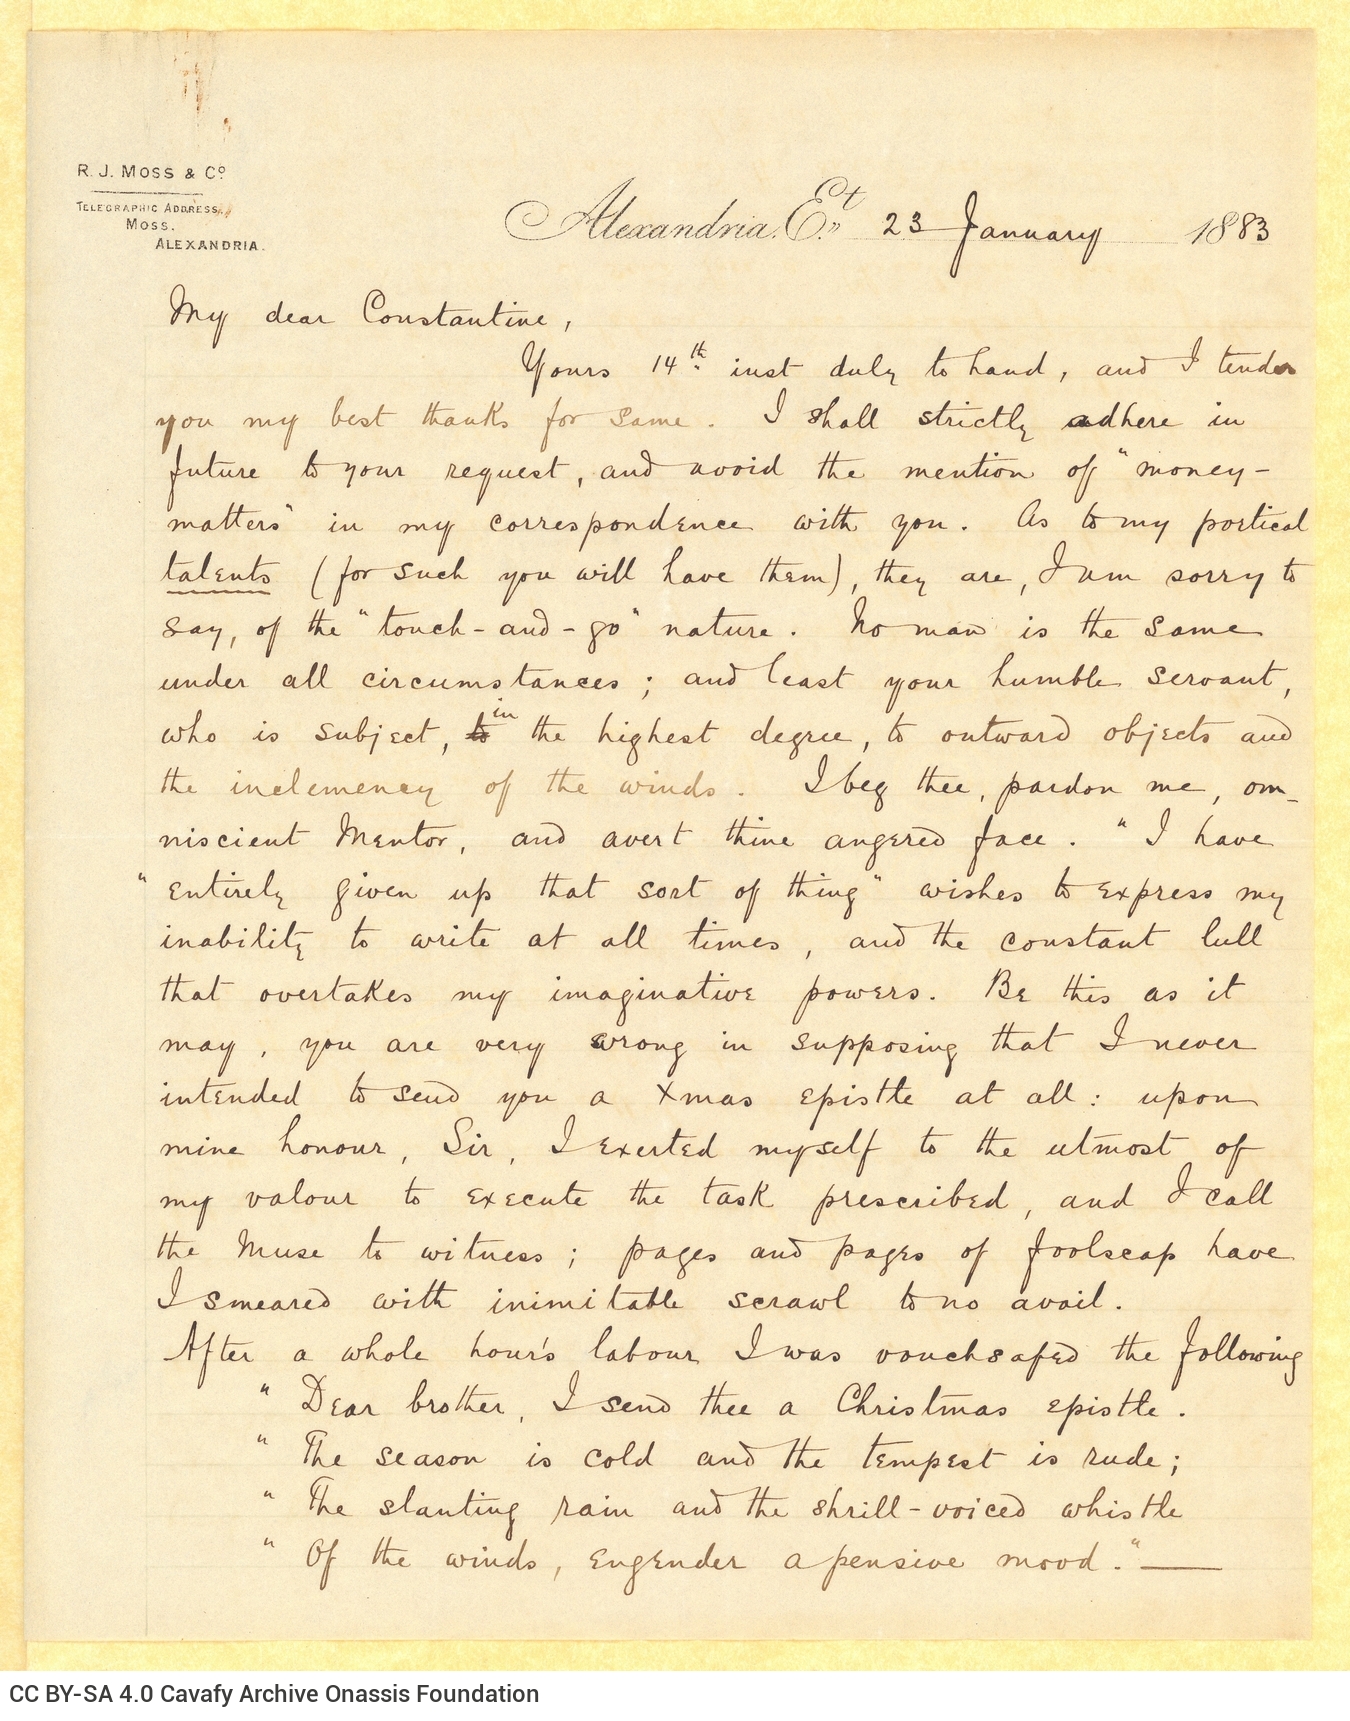 R. J. MOSS & Cº
TELEGRAPHIC ADDRESS,
MOSS.
ALEXANDRIA.
Alexandria. Et. 23 January 1883
My dear Constantine,
Yours 14th inst duly to hand, and I tender
you my best thanks for same. I shall strictly adhere in
future to your request, and avoid the mention of "money-
matters" in my correspondence with you. As to my poetical
talents (for such you will have them), they are, I am sorry to
say, of the "touch-and-go" nature. No man is the same
under all circumstances; and least your humble servant,
who is subject, to in the highest degree, to outward objects and
the inclemency of the winds. I beg thee, pardon me, om-
niscient Mentor, and avert thine angered face. "I have
"entirely given up that sort of thing" wishes to express my
inability to write at all times, and the constant lull
that overtakes my imaginative powers. Be this as it
may, you are very wrong in supposing that I never
intended to send you a Xmas epistle at all: upon
mine honour, Sir, I exerted myself to the utmost of
my valour to execute the task prescribed, and I call
the Muse to witness; pages and pages of foolscap have
I smeared with inimitable scrawl to no avail.
After a whole hour's labour I was vouchsafed the following
" Dear brother, I send thee a Christmas epistle.
" The season is cold and the tempest is rude;
" The slanting rain and the shrill-voiced whistle
" Of the winds, engender a pensive mood."—
CC BY-SA 4.0 Cavafy Archive Onassis Foundation